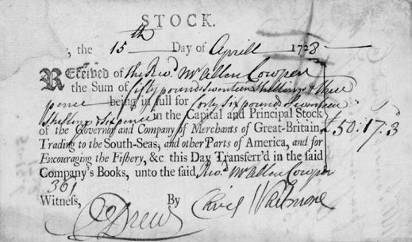 STOCK.
, the 15th Day of Aprill 1728
Received of the Revd. Mr Allen Cowper
the Sum of fifty pounds Seventeen Shillings & three
pence being in full for Forty Six pounds Seventeen
Shillings & Six pence in the Capital and Principal Stock
of the Governor and Company of Merchants of Great-Britain £50:17:3
Trading to the South-Seas, and other Parts of America, and for
Encouraging the Fishery, &c this Day Transfer'd in the said
Company's Books, unto the said Revd. Mr Allen Cowper
361
Witness, By
Drew